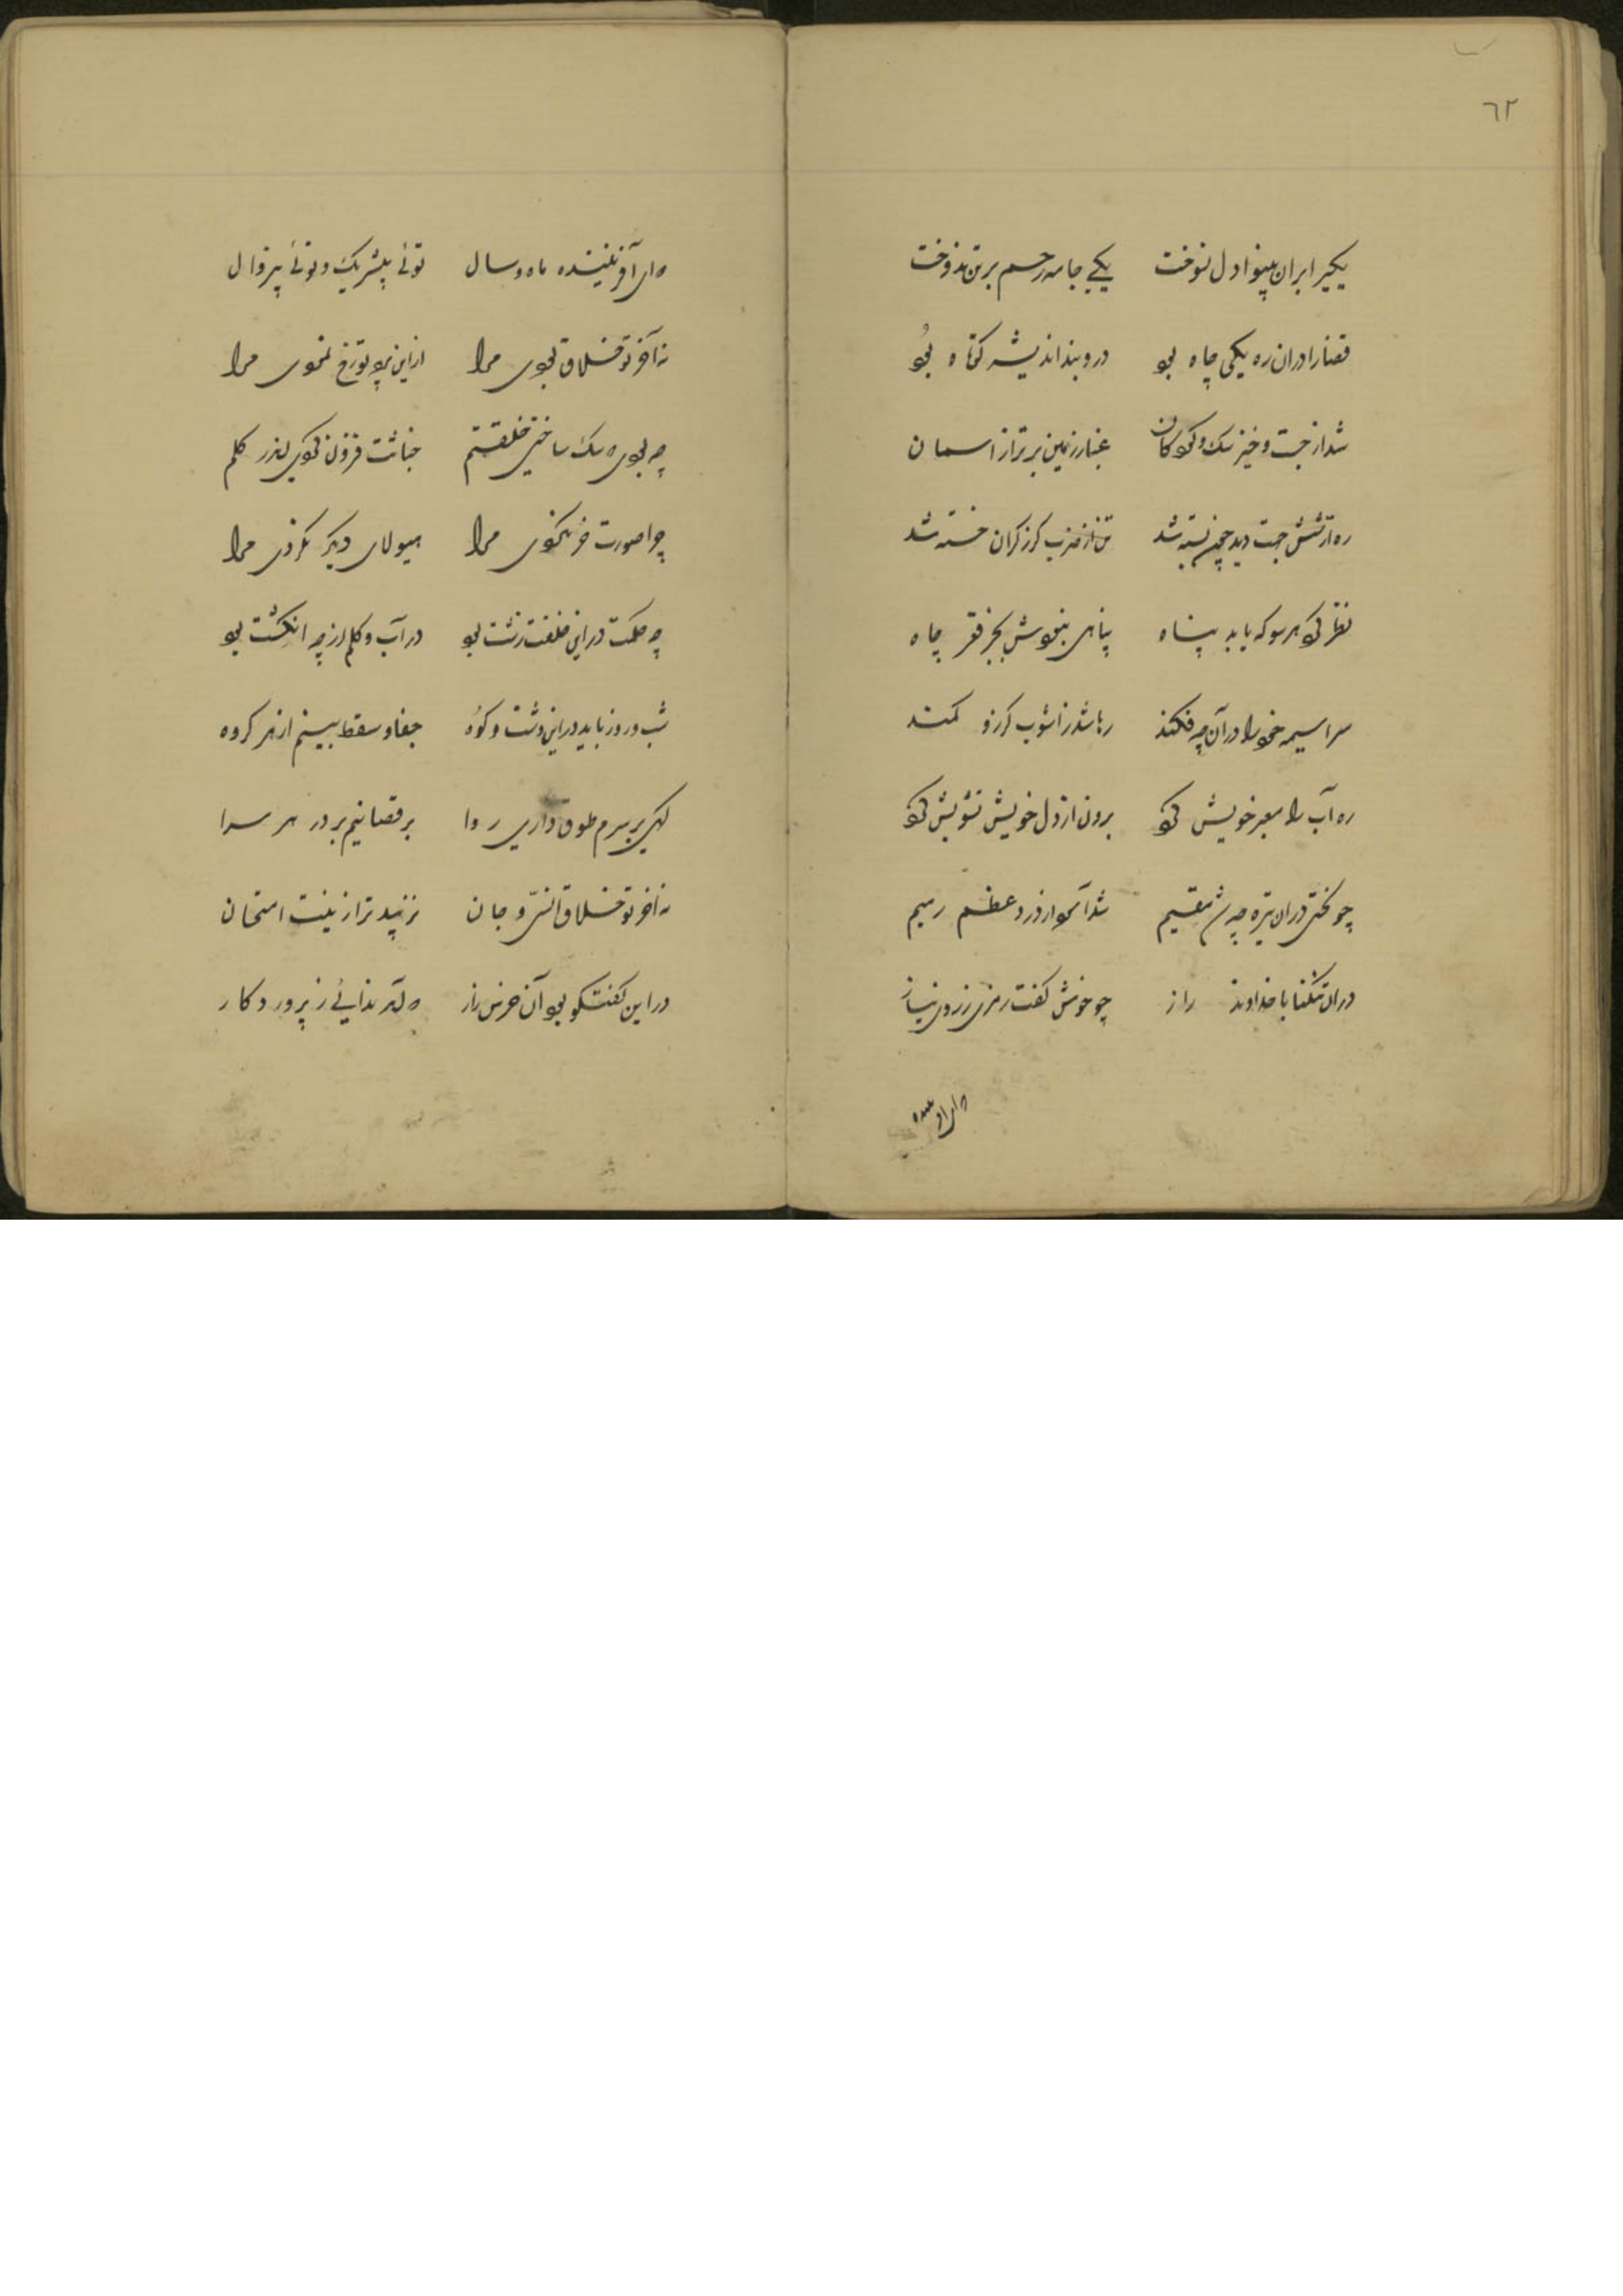 ٦٢
یکی را بران بینوا دل نسوخت یکی جامه رحم بر تن ندوخت
قضا را دران ره یکی چاه بود درو بند اندیشه کوتاه بود
شد از جست و خیز سگ و کودکان غبار زمین برتر از اسمان
ره از شش جهت دید چون بسته شد تن از ضرب کرز کران خسته شد
نظر کرد هر سو که یابد پناه پناهی نبودش بجز قعر چاه
سراسیمه خود را در آن چه فکند رها شد ز اشوب کرز و کمند
ره آب را معبر خویش کرد برون از دل خویش تشویش کرد
چو لختی دران تیره چه شد مقیم شد آسوده از درد عظم رمیم
دران تنکنا با خداوند راز چو خرش کفت رمزی ز روی نیاز
که ای آفریننده ماه و سال توئی بیشریک و توئی بیزوال
نه آخر تو خلاق بودی مرا از این پرده تو رخ نمودی مرا
چه بودی که سک ساختی خلقتم خباثت فزون کردی اندر کلم
چرا صورت خر نکردی مرا هیولای دیکر نکردی مرا
چه حکمت در این خلقت زشت بود در آب و کلم از چه انکشت بود
شب و روز باید در این دشت و کوه جفا و سقط بینم از هر کروه
کهی بر سرم طوق داری روا برقصانیم بر در هر سرا
نه اخر تو خلاق انسی و جان نزیبد ترا زینت امتحان
در این کفتکو بود آن خرس زار که آمد ندائی ز پروردکار